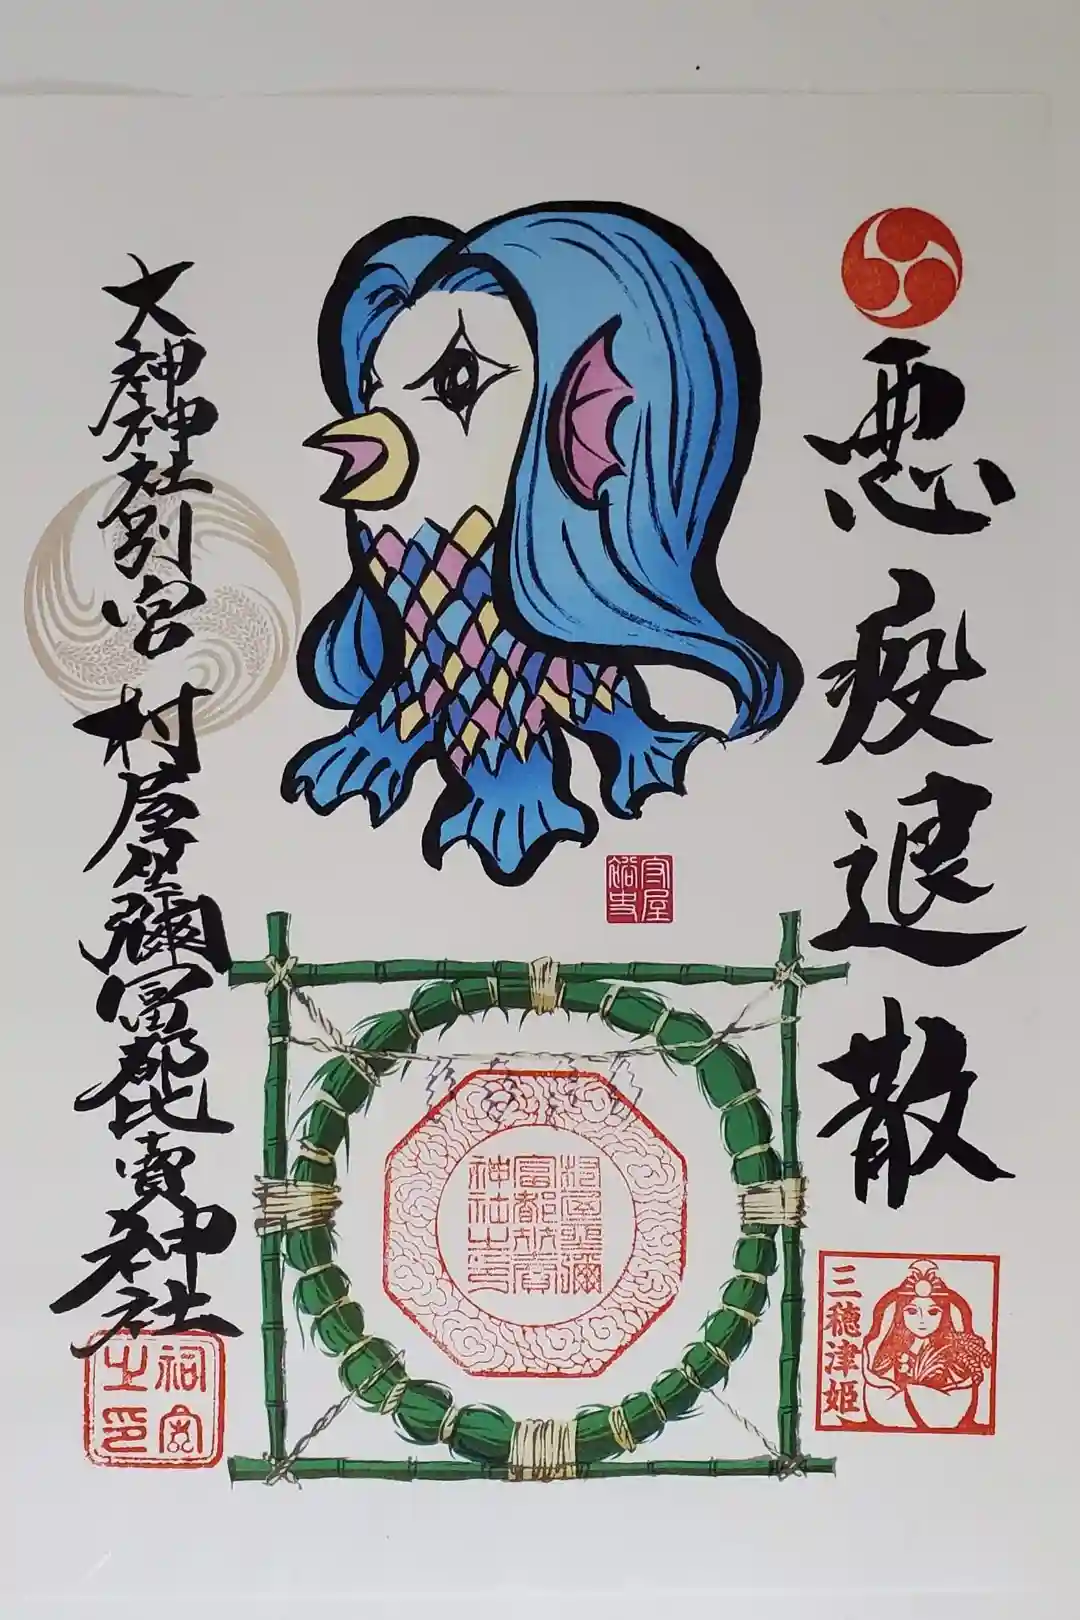 悪疫退散
三穂津姫
守屋
裕史
村屋坐彌
冨都比賣
神社之印
大神神社別宮 村屋坐彌冨都比賣神社
祠官
之印